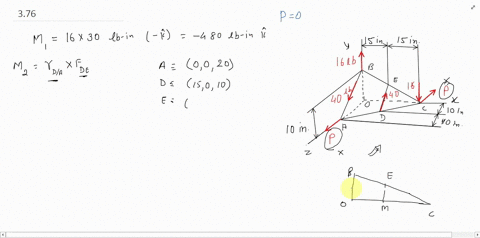 3.76
P=0
M₁ = 16 x 30 lb-in (-k̂) = -480 lb-in k̂
M₂ = r_D/A x F_DE
A ≡ (0,0,20)
D ≡ (15,0,10)
E ≡ (
15 in
15 in
y
16 lb
B
E
x
P
40 lb
40
16
O
C
x
D
10 in
10 in.
10 in.
A
z
P
-x
B
E
O
M
C